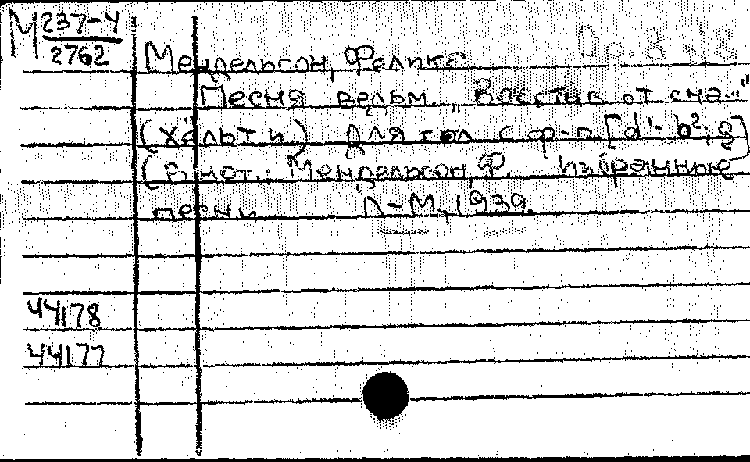 М 237-4
2762
Мендельсон, Феликс
Песня ведьм. „Восстав от сна..."
(Хёльти) Для гол. с ф-п. [d'- b²; g]
(В нот.: Мендельсон, Ф. Избранные
песни Л-М, 1939.
44178
44177